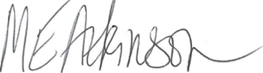 M E Atkinson